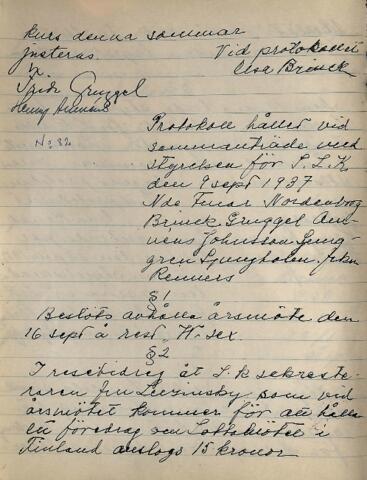 kurs denna sommar
Justeras. Vid protokollet
Elsa Brinck
Gruggel
Henny
No 82
Protokoll hållet vid
sammanträde med
styrelsen för S. L. K
den 9 sept 1937
Nde Fruar Nordenborg
Brinck Gruggel
Johnsson Ljung-
gren Ljungholm Frkn
Renners
§ 1
Beslöts avhålla årsmöte den
16 sept å rest. W-sex.
§ 2
I resebidrag åt S. k sekrete-
raren fru som vid
årsmötet kommer för att hålla
ett föredrag om Lottamötet i
Finland anslogs 15 kronor